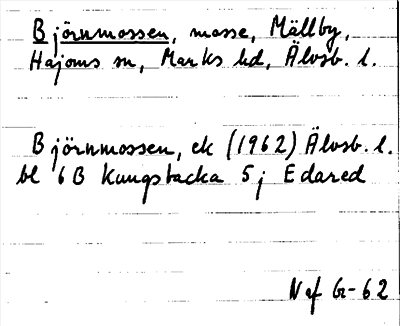 Björnmossen, mosse, Mällby,
Hajoms sn, Marks hd, Älvsb. l.
Björnmossen, ek (1962) Älvsb. l.
bl 6B Kungsbacka 5j Edared
Naf G-62